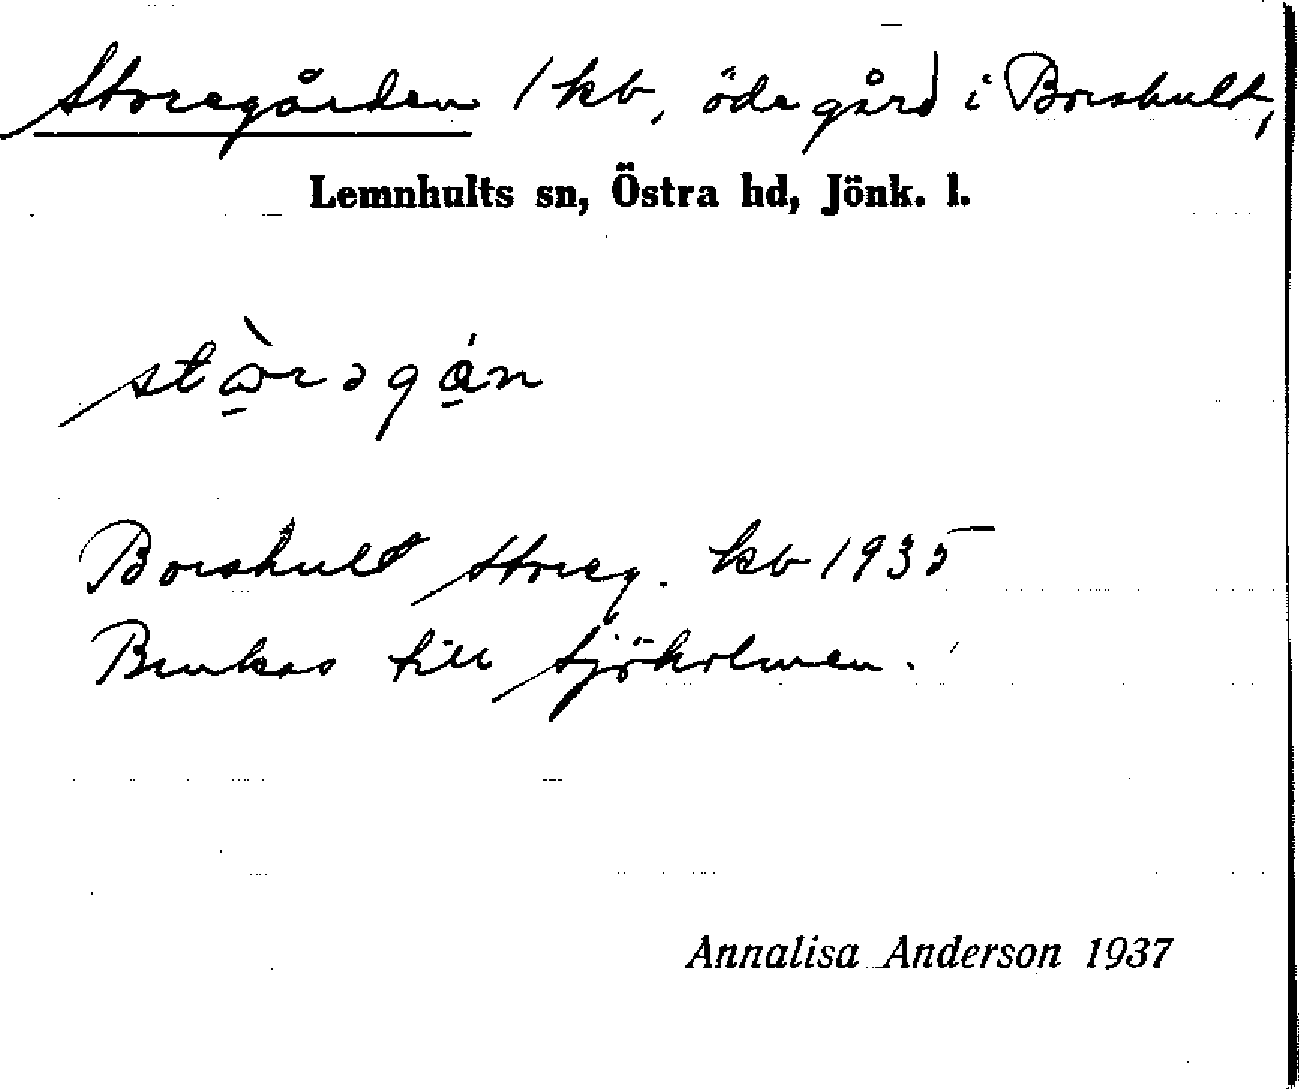 Storegården / kb, öde gård i Borshult,
Lemnhults sn, Östra hd, Jönk. l.
Borshult Storeg. kb 1935
Brukas till Sjöholmen.
Annalisa Anderson 1937